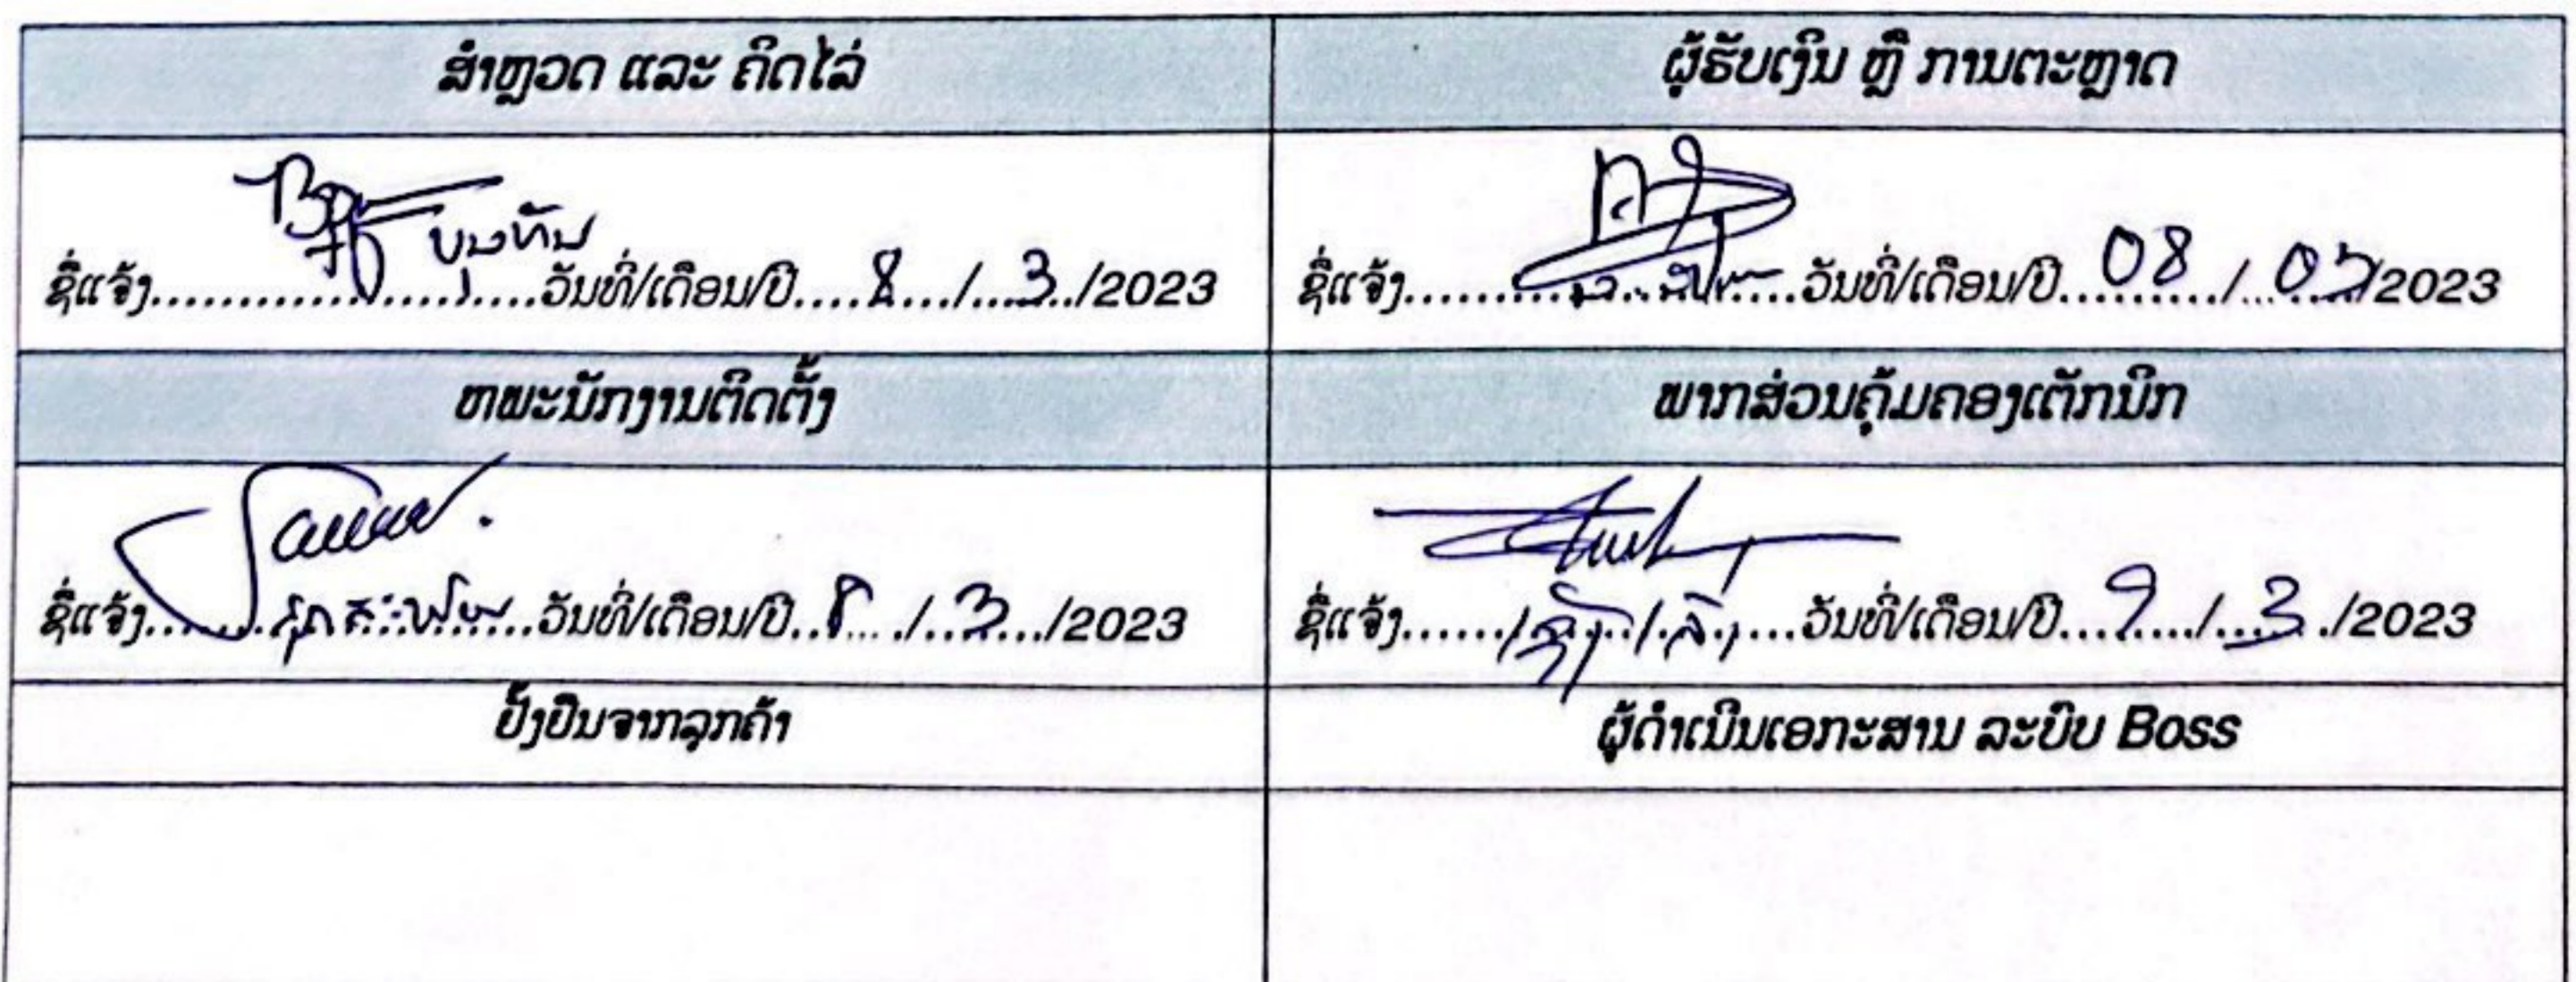 ສຳຫຼວດ ແລະ ຄິດໄລ່
ຜູ້ຮັບເງິນ ຫຼື ການຕະຫຼາດ
ບຸນທັນ
ຊື່ແຈ້ງ.....................ວັນທີ່/ເດືອນ/ປີ....8.../...3../2023
ຊື່ແຈ້ງ.....................ວັນທີ່/ເດືອນ/ປີ...08.../...03../2023
ຫພະນັກງານຕິດຕັ້ງ
ພາກສ່ວນຄຸ້ມຄອງເຕັກນິກ
ຊື່ແຈ້ງ.....................ວັນທີ່/ເດືອນ/ປີ..8..../..3.../2023
ຊື່ແຈ້ງ.....................ວັນທີ່/ເດືອນ/ປີ...9..../...3../2023
ຢັ້ງຢືນຈາກລູກຄ້າ
ຜູ້ດຳເນີນເອກະສານ ລະບົບ Boss